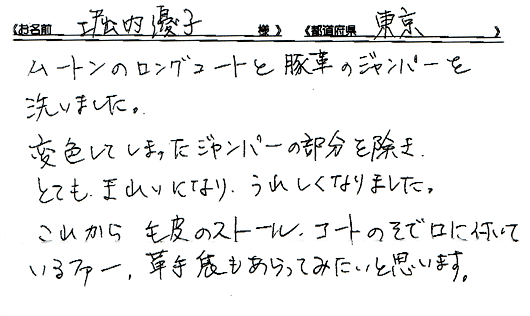 《お名前 堀内優子 様》 《都道府県 東京 》
ムートンのロングコートと豚革のジャンパーを
洗いました。
変色してしまったジャンパーの部分を除き、
とても、きれいになり、うれしくなりました。
これから毛皮のストール、コートのそで口に付いて
いるファー、革手袋もあらってみたいと思います。